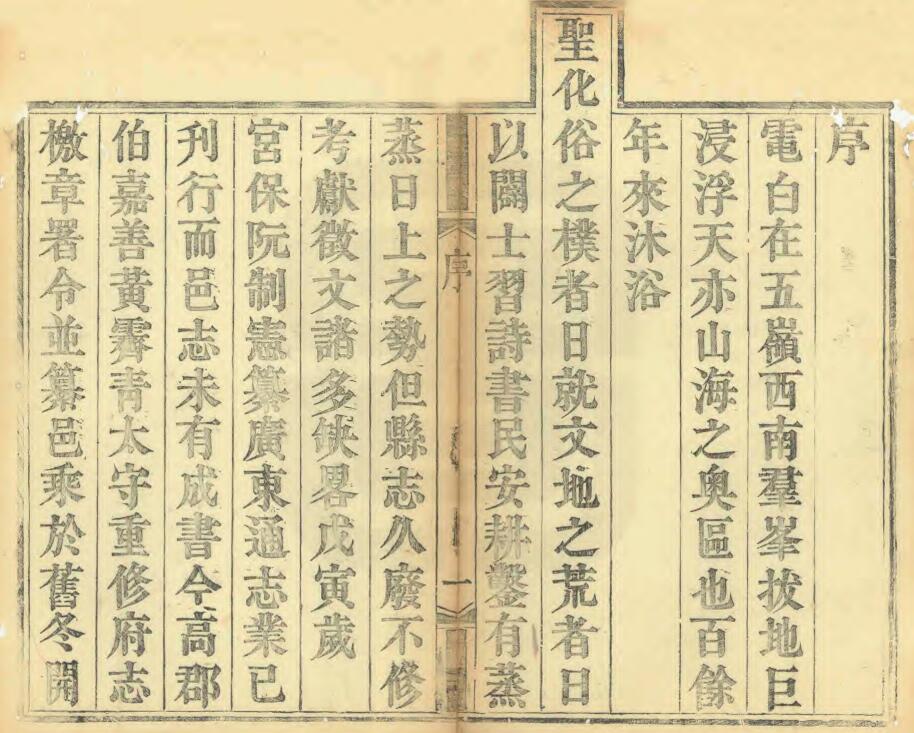 序
電白在五嶺西南羣峯拔地巨
浸浮天亦山海之奥區也百餘
年來沐浴
聖化俗之樸者日就文地之荒者日
以闢士習詩書民安耕鑿有蒸
序
一
蒸日上之勢但縣志久廢不修
考獻徵文諸多缺畧戊寅歲
宮保阮制憲纂廣東通志業已
刋行而邑志未有成書今高郡
伯嘉善黃霽靑太守重修府志
檄章署令並纂邑乘於舊冬開